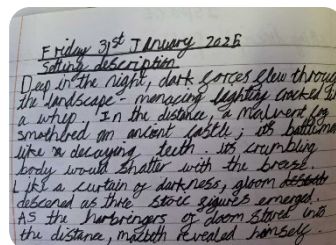 Friday 31st January 2025
Setting description
Deep in the night, dark forces flew through
the landscape - menacing lighting cracked like
a whip. In the distance, a malovent fog
smothered an ancient castle; its battlements
like decaying teeth. its crumbling
body would shatter with the breeze.
Like a curtain of darkness, gloom
descened as three stoic figures emerged.
As the harbringers of doom stared into
the distance, macbeth revealed himself.